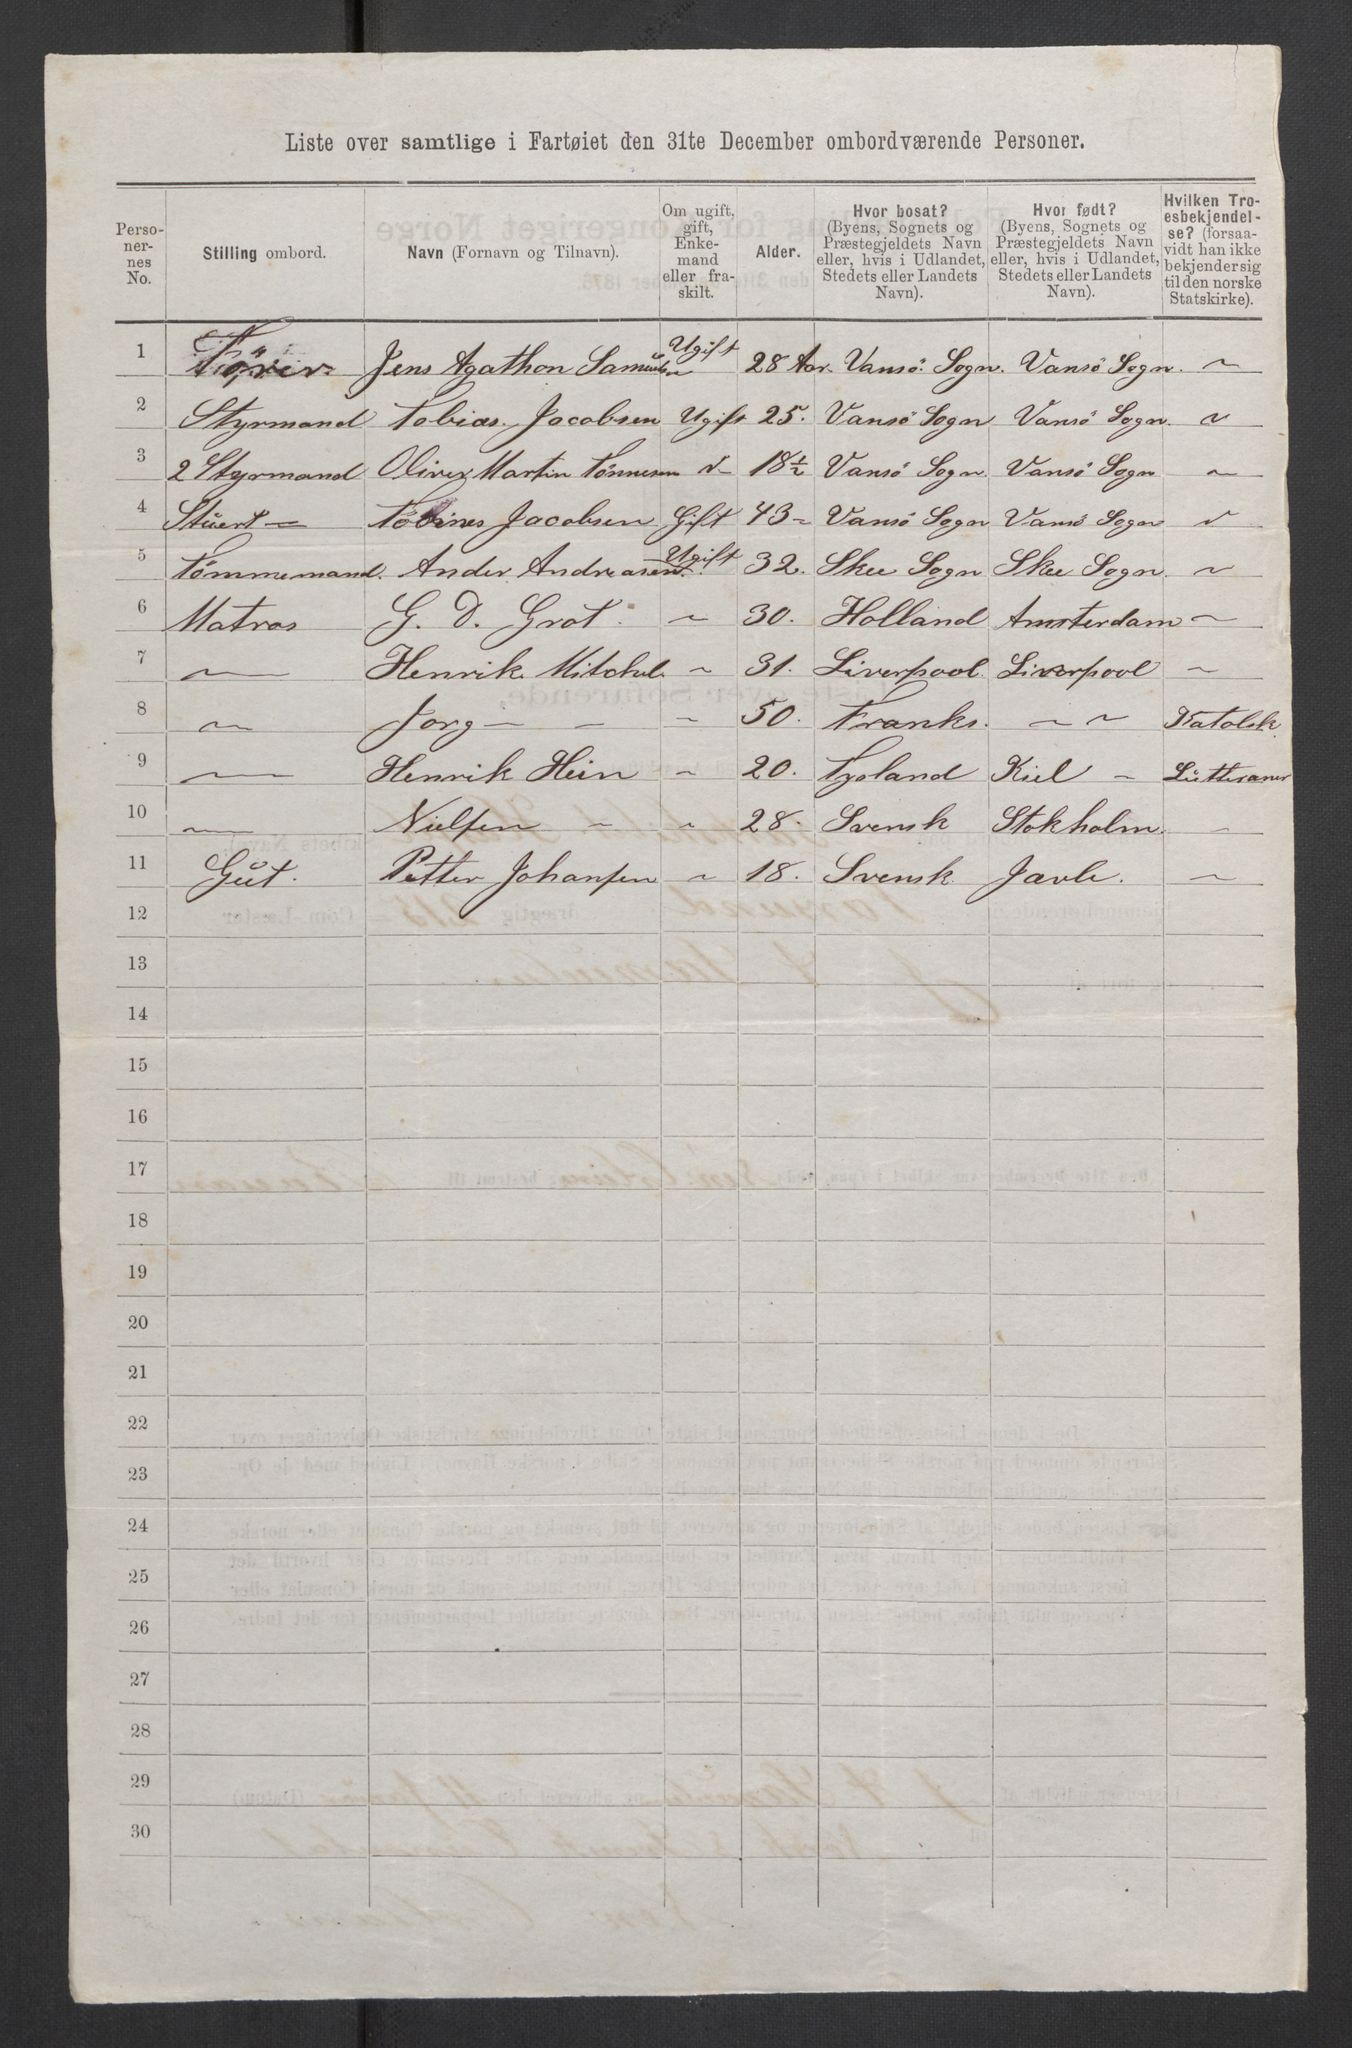 Liste over samtlige i Fartøiet den 31te December ombordværende Personer.
Perso-
ner-
nes
No.
Stilling ombord.
Navn (Fornavn og Tilnavn).
Om ugift,
gift,
Enke-
mand
eller fra-
skilt.
Alder.
Hvor bosat?
(Byens, Sognets og
Præstegjeldets Navn
eller, hvis i Udlandet,
Stedets eller Landets
Navn).
Hvor født?
(Byens, Sognets og
Præstegjeldets Navn
eller, hvis i Udlandet,
Stedets eller Landets
Navn).
Hvilken Tro-
esbekjendel-
se? (forsaa-
vidt han ikke
bekjender sig
til den norske
Statskirke).
1 Förer. Jens Agathon Samuels Ugift 28 Aar. Vansö Sogn. Vansö Sogn. ~
2 Styrmand Tobias Jacobsen Ugift 25. Vansö Sogn Vansö Sogn. ~
3 2 Styrmand Oliver Martin Tönnesen ~ 18½ Vansö Sogn. Vansö Sogn ~
4 Stuert — Tobines Jacobsen Gift 43 – Vansö Sogn Vansö Sogn ~
5 Tömmemand. Ander Andreasen Ugift 32. Skee Sogn Skee Sogn. ~
6 Matros G. D. Grot. ~ 30. Holland Amsterdam ~
7 ~ Henrik Mitchel. ~ 31. Liverpool. Liverpool ~
8 ~ Jorg – – ~ 50. Franks. ~ ~ Katolsk
9 ~ Henrik Hein ~ 20. Tysland Kiel ~ Lutteraner
10 ~ Nielsen ~ ~ 28. Svensk Stokholm. ~
11 Gut. Petter Johansen ~ 18. Svensk Javle. ~
12
13
14
15
16
17
18
19
20
21
22
23
24
25
26
27
28
29
30